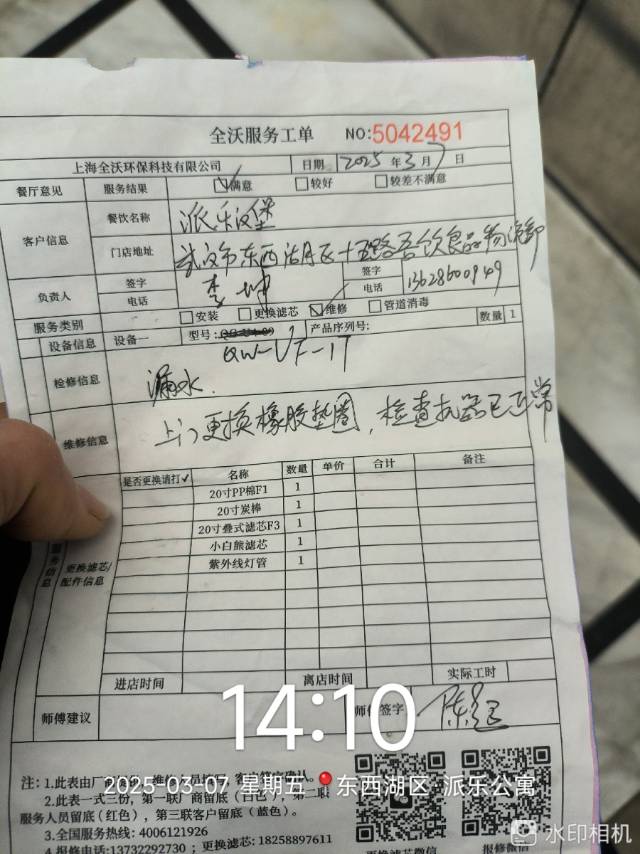 全沃服务工单 NO:5042491
上海全沃环保科技有限公司 日期 2025年3月7日
餐厅意见 服务结果 ☑满意 □较好 □较差不满意
客户信息 餐饮名称 派乐汉堡
门店地址 武汉市东西湖区十五路吾饮食品物流
负责人 签字 李 签字
电话 电话 13628600949
服务类别 □安装 □更换滤芯 ☑维修 □管道消毒
设备信息 设备一 型号: QW-UF-1T 产品序列号: 数量 1
检修信息 漏水.
维修信息 上门更换橡胶垫圈,检查机器已正常
服务信息 更换滤芯/配件信息
是否更换请打✓ 名称 数量 单价 合计 备注
20寸PP棉F1 1
20寸炭棒 1
20寸叠式滤芯F3 1
小白熊滤芯 1
紫外线灯管 1
进店时间 离店时间 实际工时
师傅建议 师傅签字 陈
14:10
2025-03-07 星期五 东西湖区 派乐公寓
注: 1.此表由厂
2.此表一式三份,第一联厂商留底(白色),第二联
服务人员留底(红色),第三联客户留底(蓝色)。
3.全国服务热线: 4006121926
4.报修电话:13732292730 ;更换滤芯: 18258897611
更换滤芯微信 报修微信
水印相机